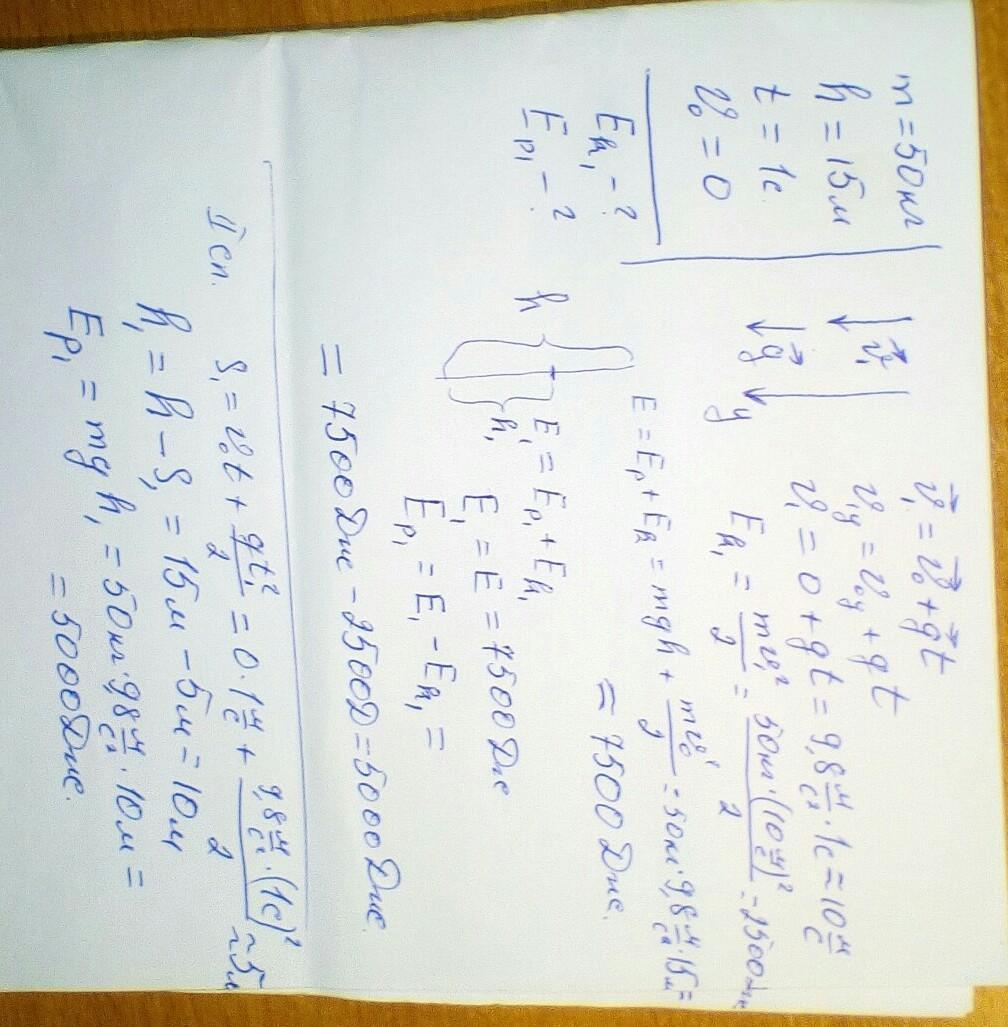 m = 50 кг
h = 15 м
t = 1 с
v₀ = 0
Eк₁ - ?
Eр₁ - ?
v⃗₁
g⃗
y
v⃗₁ = v⃗₀ + g⃗t
v₁y = v₀y + gt
v₁ = 0 + gt = 9,8 м/с² · 1с = 10 м/с
Eк₁ = mv₁²/2 = 50кг · (10 м/с)²/2 = 2500 Дж
E = Eр + Eк = mgh + mv₀²/2 = 50кг · 9,8 м/с² · 15м =
= 7500 Дж.
h
h₁
E₁ = Eр₁ + Eк₁
E₁ = E = 7500 Дж
Eр₁ = E₁ - Eк₁ =
= 7500 Дж - 2500 Д = 5000 Дж.
II сп.
S₁ = v₀t + gt₁²/2 = 0 · 1 м/с + 9,8 м/с² · (1с)²/2 ~ 5м
h₁ = h - S₁ = 15м - 5м = 10м
Eр₁ = mgh₁ = 50кг · 9,8 м/с² · 10м =
= 5000 Дж.